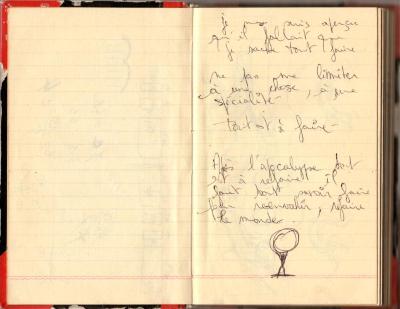 je me suis aperçue
qu'il fallait que
je sache tout faire
ne pas me limiter
à une chose, à une
spécialité -
tout est à faire -
Après l'apocalypse tout
est à refaire, il
faut tout savoir faire
pour reconstruire, refaire
le monde